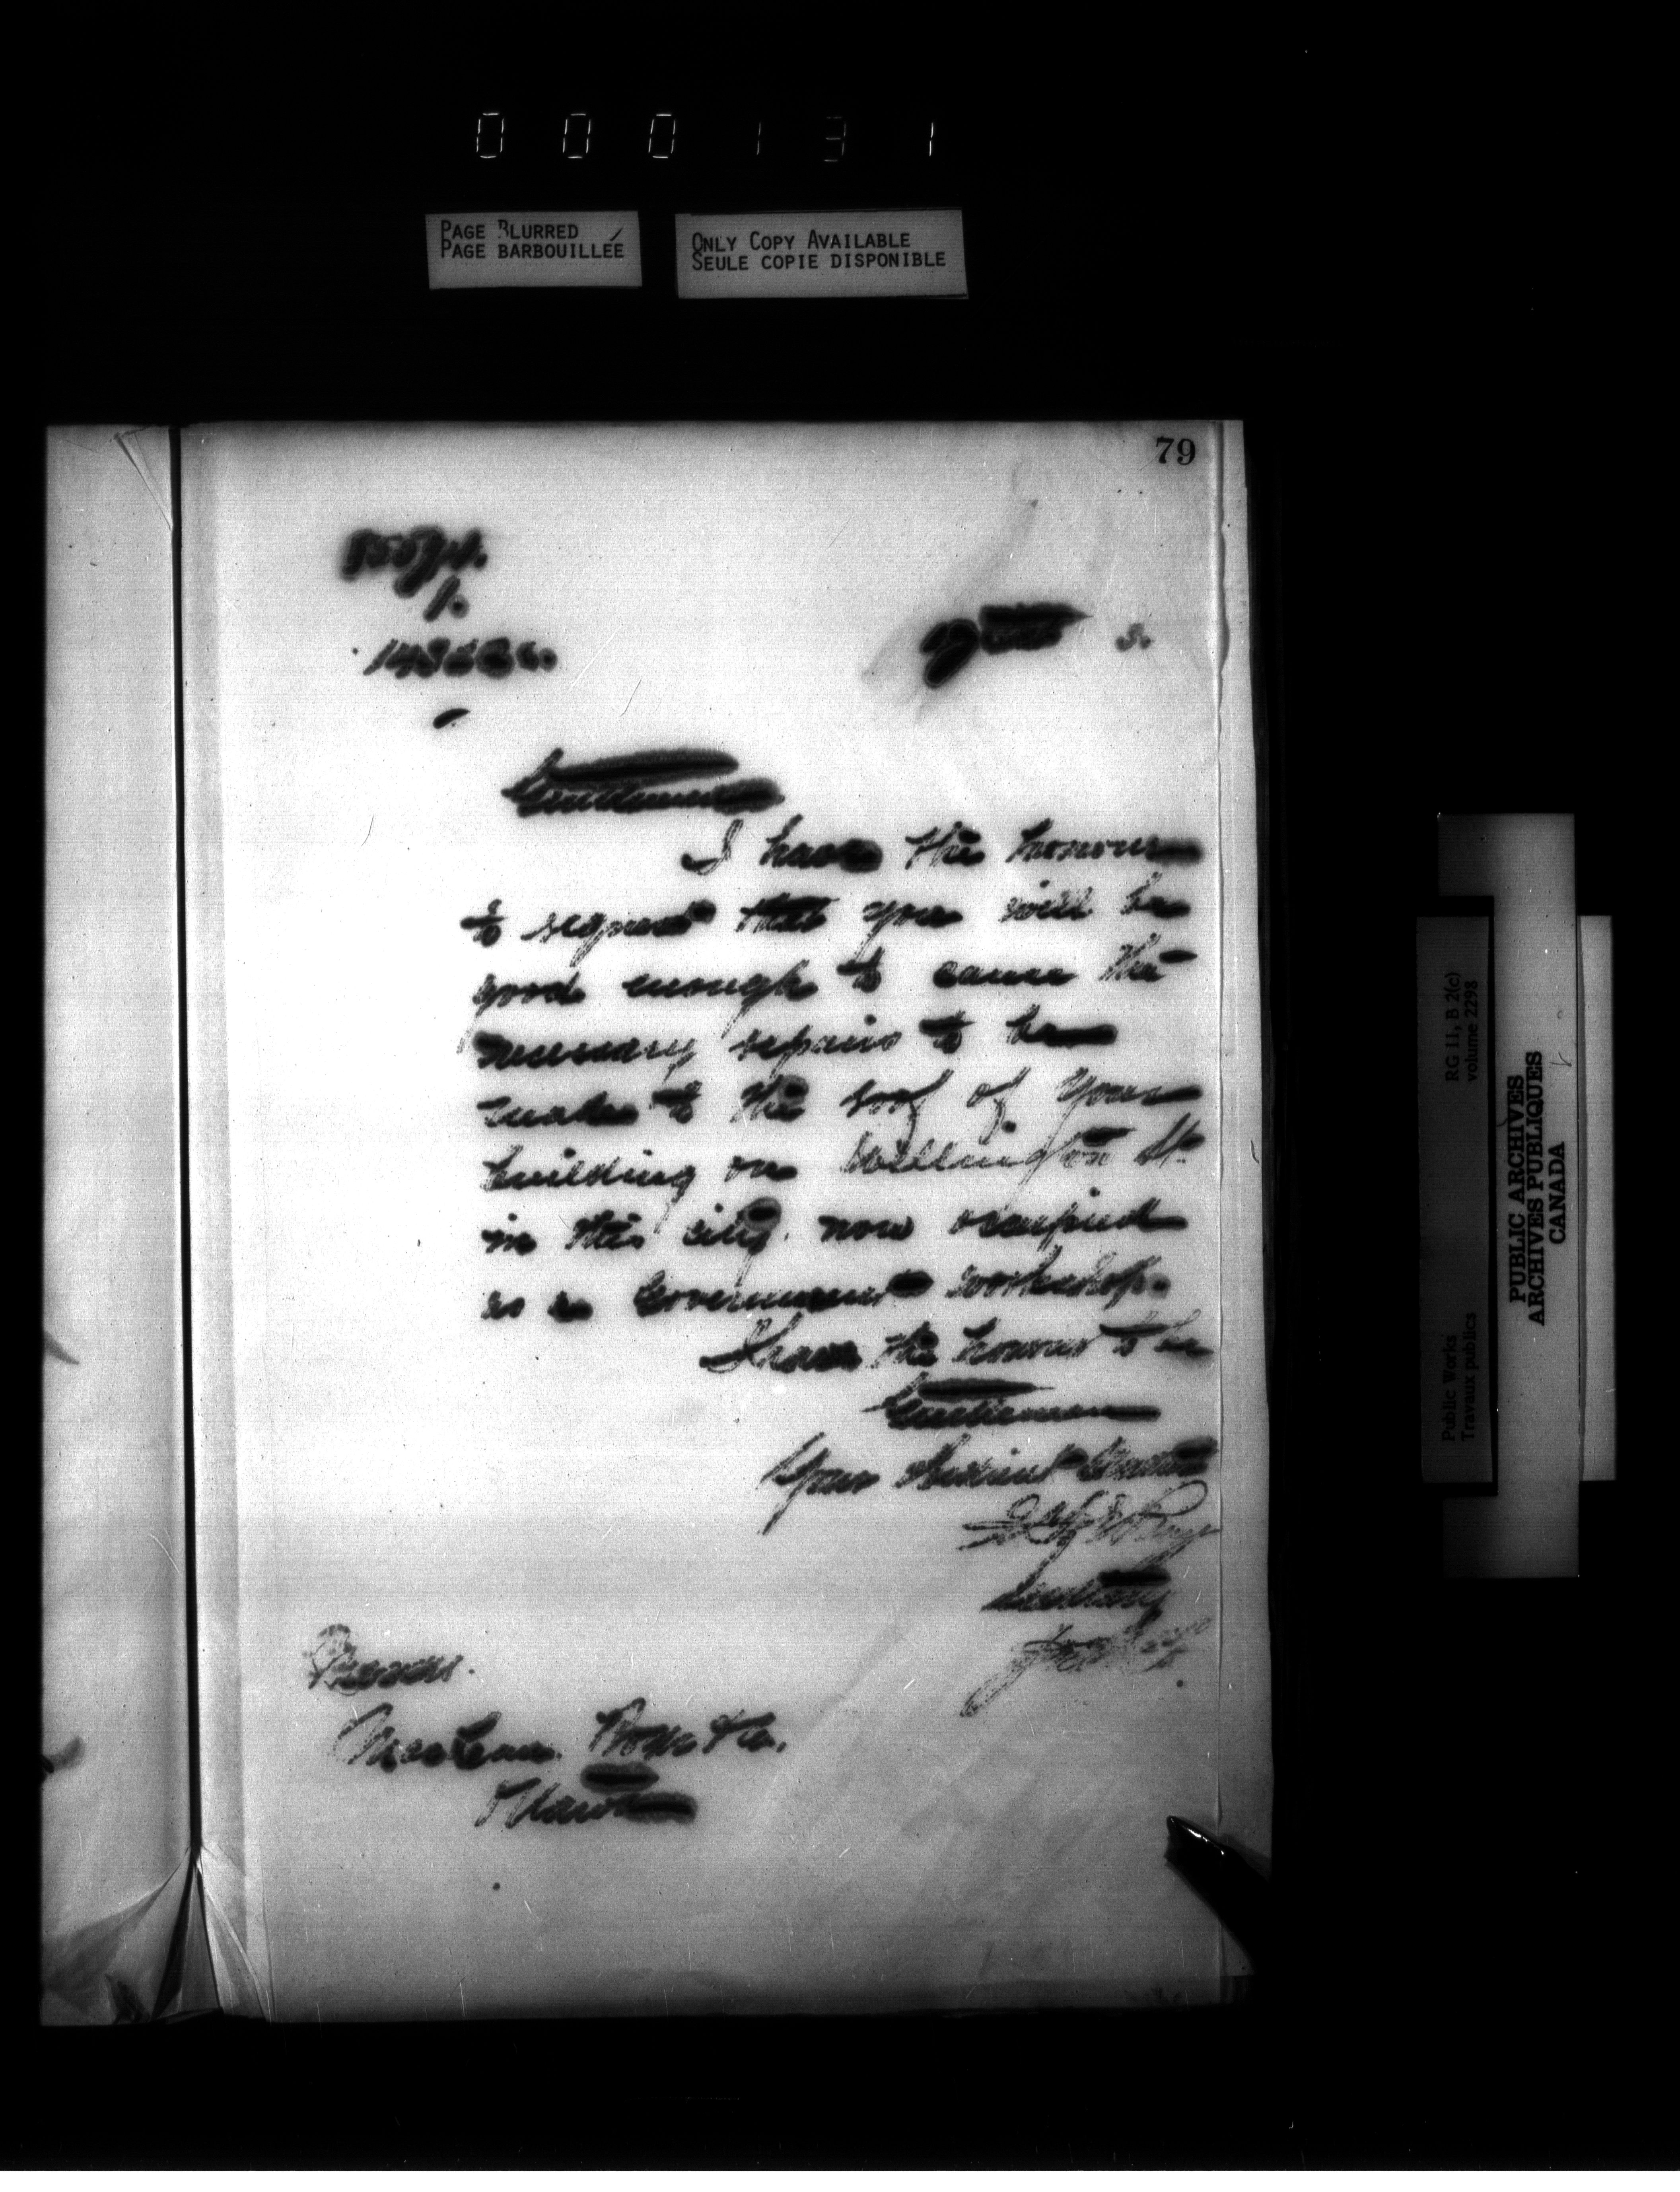 000131
PAGE BLURRED
PAGE BARBOUILLÉE
ONLY COPY AVAILABLE
SEULE COPIE DISPONIBLE
79
Gentlemen
I have the honour
to request that you will be
good enough to cause the
necessary repairs to be
made to the roof of your
building on Wellington St.
in this city, now occupied
as a Government workshop.
I have the honour to be
Gentlemen
Your obedient Servant
Secretary
Messrs.
Ottawa
RG 11, B 2(c)
volume 2298
Public Works
Travaux publics
PUBLIC ARCHIVES
ARCHIVES PUBLIQUES
CANADA